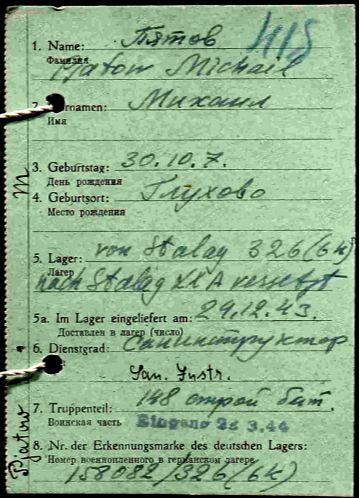 415
1. Name: Пятов
Фамилия
Pjatow Michail
2. Vornamen: Михаил
Имя
3. Geburtstag: 30.10.7.
День рождения
4. Geburtsort: Глухово
Место рождения
5. Lager: von Stalag 326 (6k)
Лагерь
nach Stalag XX A versetzt
5a. Im Lager eingeliefert am: 29.12.43.
Доставлен в лагерь (число)
6. Dienstgrad: Санинструктор
San. Instr.
7. Truppenteil: 148 строй бат.
Воинская часть Eingang 28 3.44
8. Nr. der Erkennungsmarke des deutschen Lagers:
Номер военнопленного в германском лагере
158082/326 (6k)
M
Pjatow